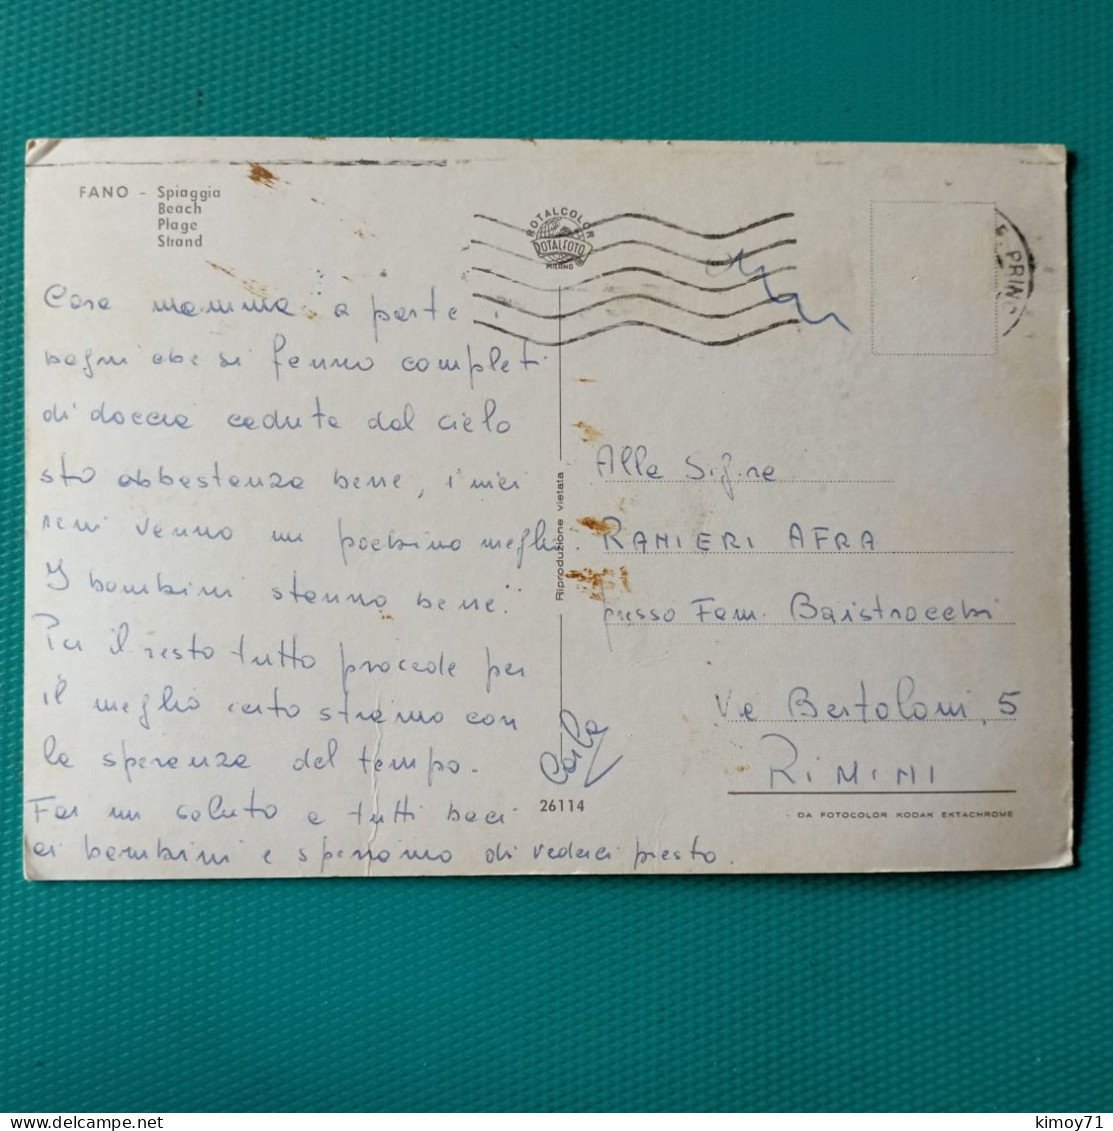 FANO - Spiaggia
Beach
Plage
Strand
ROTALCOLOR
ROTALFOTO
MILANO
PRINC
Cara mamma a parte i
bagni che si fanno completi
di doccia caduta dal cielo
sto abbastanza bene, i miei
reni vanno un pochino meglio.
I bambini stanno bene.
Per il resto tutto procede per
il meglio certo stiamo con
la speranza del tempo.
Fai un saluto a tutti baci
ai bambini e speriamo di vederci presto.
Carla
Riproduzione vietata
26114
Alla Sig.ra
RANIERI AFRA
presso Fam. Baistrocchi
Via Bertoloni, 5
RIMINI
DA FOTOCOLOR KODAK EKTACHROME
kimoy71